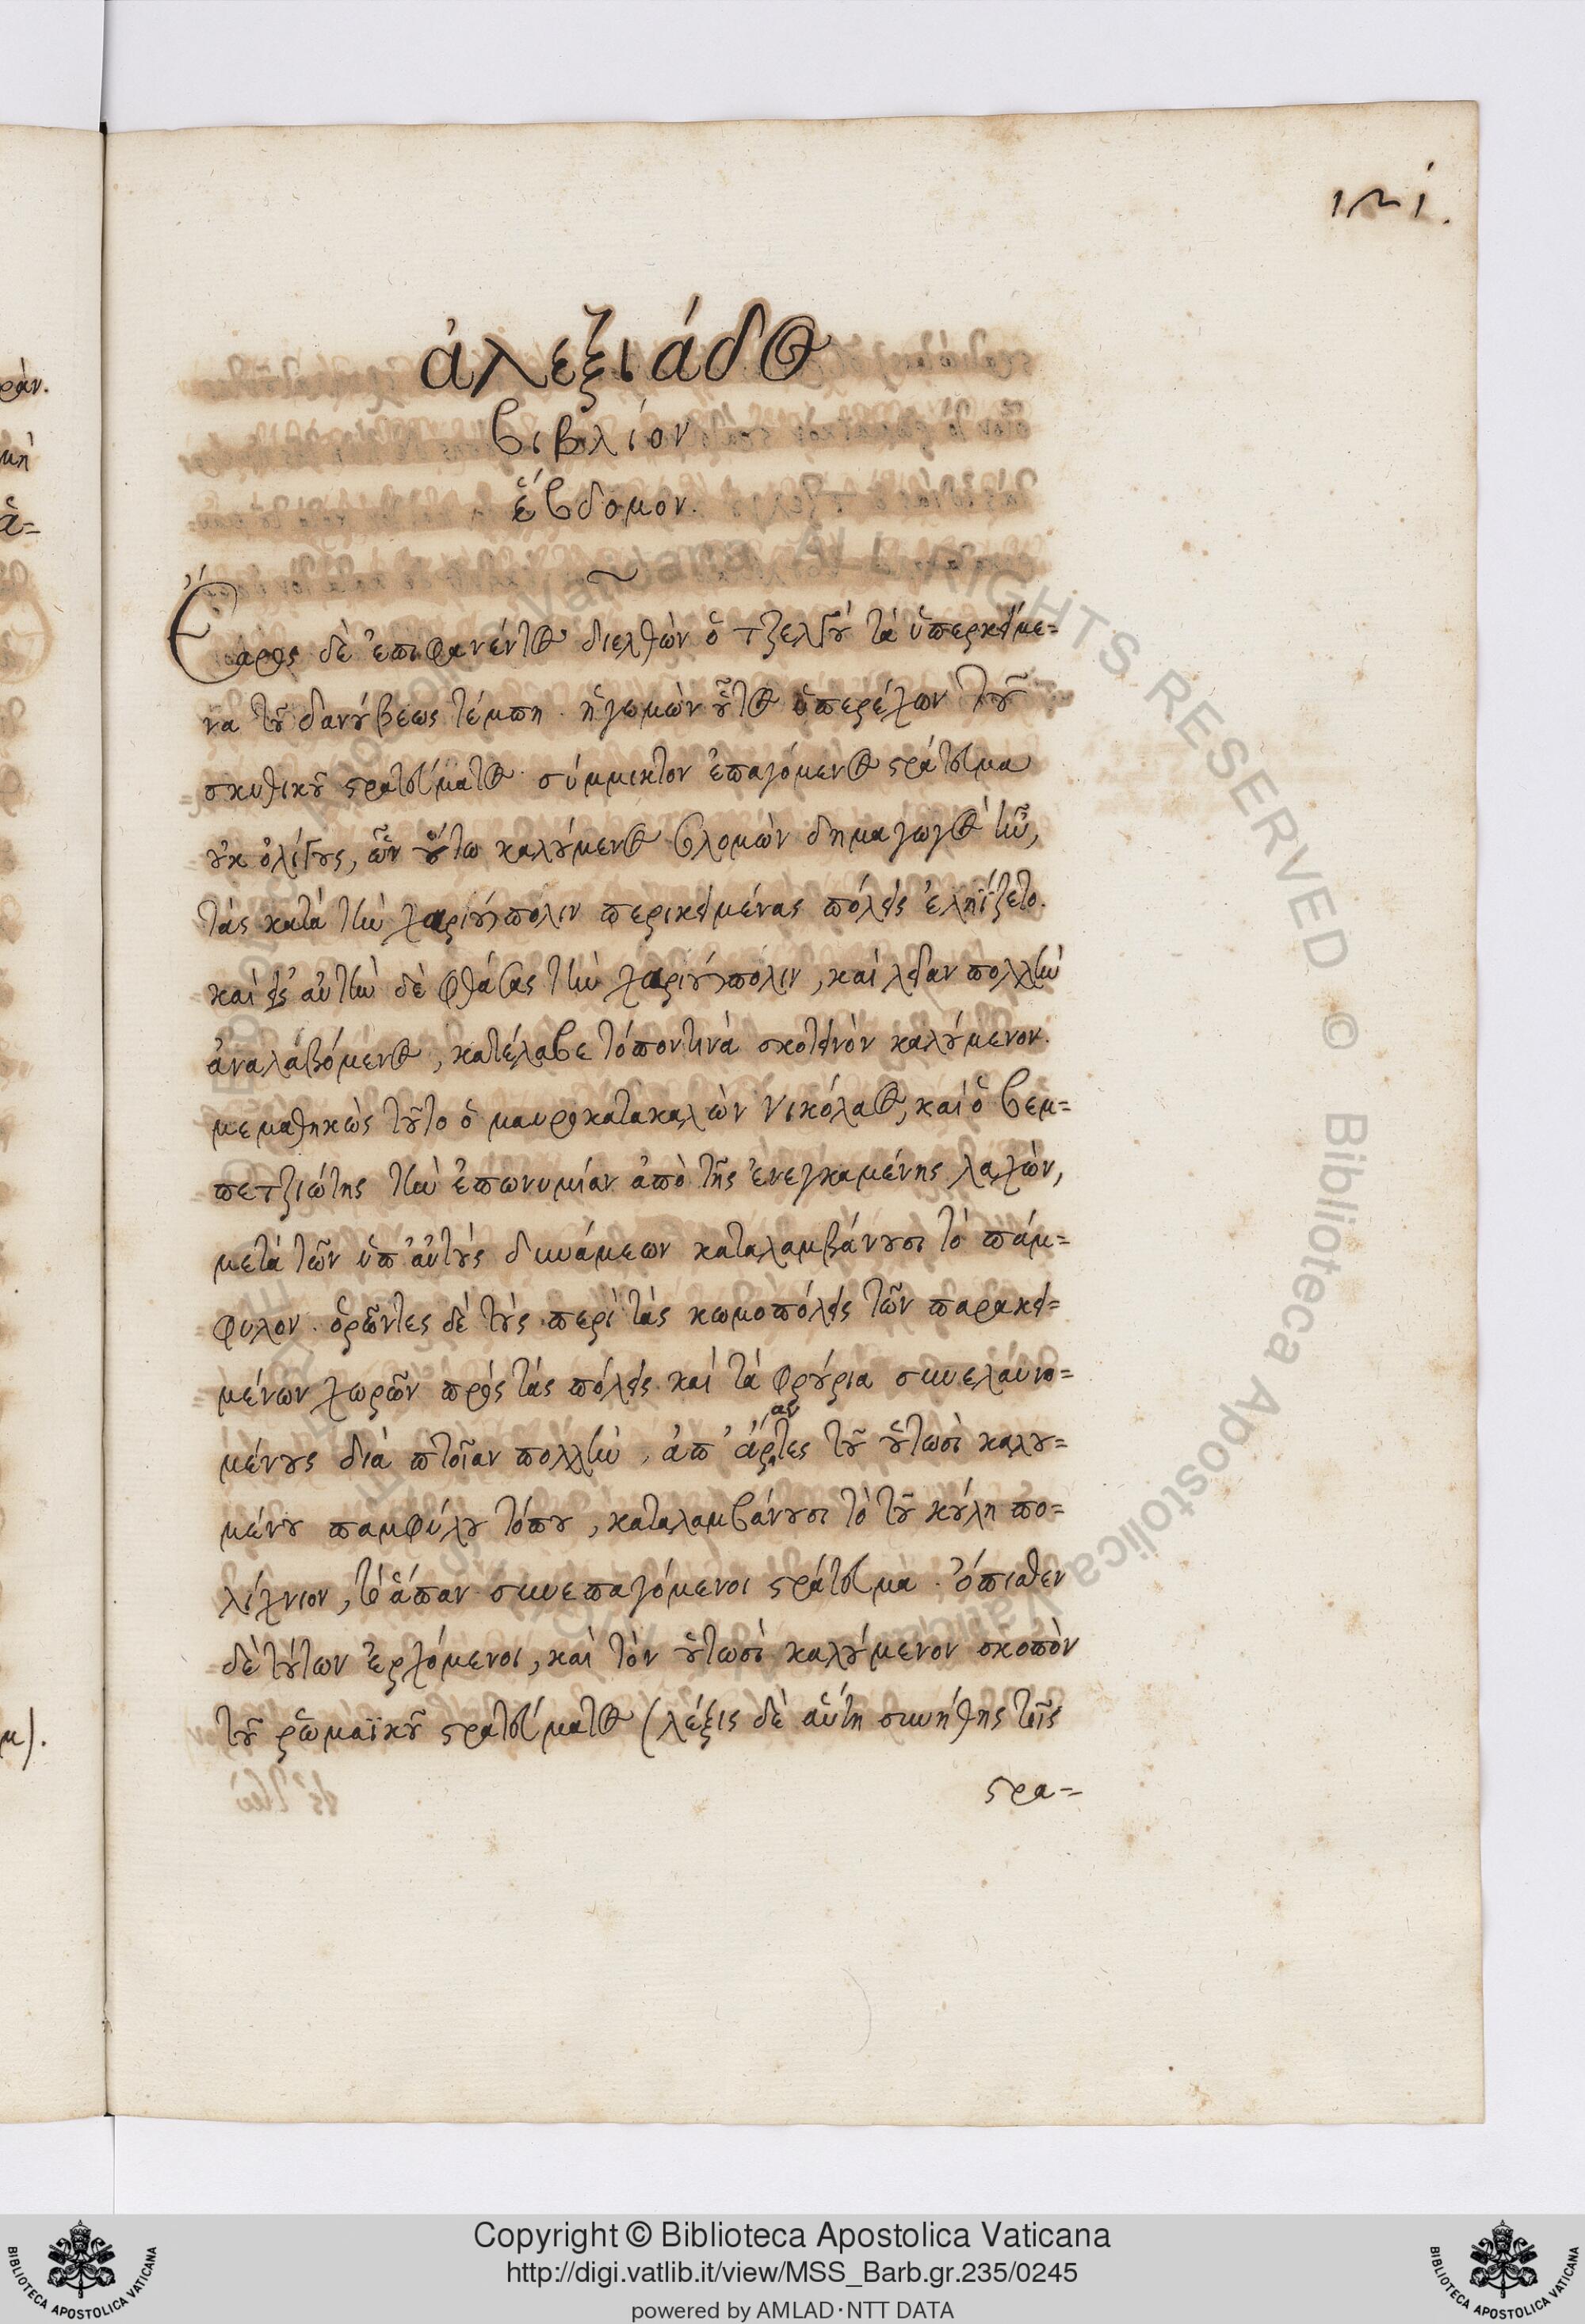 121.
ἀλεξιάδος
βιβλίον
ἕβδομον.
Ἔαρος δὲ ἐπιφανέντος διελθὼν ὁ τζελγοὺ τὰ ὑπερκείμε=
να τοῦ δανούβεως τέμπη. ἡγεμὼν οὗτος ὑπερέχων τοῦ
σκυθικοῦ στρατεύματος. σύμμικτον ἐπαγόμενος στράτευμα
οὐκ ὀλίγους, ὧν οὕτω καλούμενος σλομὼν δημαγωγὸς ἦν,
τὰς κατὰ τὴν χαριούπολιν περικειμένας πόλεις ἐληΐζετο.
καὶ εἰς αὐτὴν δὲ φθάσας τὴν χαριούπολιν, καὶ λείαν πολλὴν
ἀναλαβόμενος, κατέλαβε τόπον τινὰ σκοτεινὸν καλούμενον.
μεμαθηκὼς τοῦτο ὁ μαυροκατακαλὼν νικόλαος, καὶ ὁ βεμ=
πετζιώτης τὴν ἐπωνυμίαν ἀπὸ τῆς ἐνεγκαμένης λαχὼν,
μετὰ τῶν ὑπ' αὐτοὺς δυνάμεων καταλαμβάνουσι τὸ πάμ=
φυλον. ὁρῶντες δὲ τοὺς περὶ τὰς κωμοπόλεις τῶν παρακει=
μένων χωρῶν πρὸς τὰς πόλεις καὶ τὰ φρούρια συνελαυνο=
μένους διὰ πτοῖαν πολλὴν, ἀπ' ἄραντες τοῦ οὑτωσὶ καλου=
μένου παμφύλου τόπου, καταλαμβάνουσι τὸ τοῦ κούλη πο=
λίχνιον, τὸ ἅπαν συνεπαγόμενοι στράτευμα. ὄπισθεν
δὲ τούτων ἐρχόμενοι, καὶ τὸν οὑτωσὶ καλούμενον σκοπὸν
τοῦ ῥωμαϊκοῦ στρατεύματος (λέξις δὲ αὕτη συνήθης τοῖς
στρα=
Copyright © Biblioteca Apostolica Vaticana
http://digi.vatlib.it/view/MSS_Barb.gr.235/0245
powered by AMLAD·NTT DATA